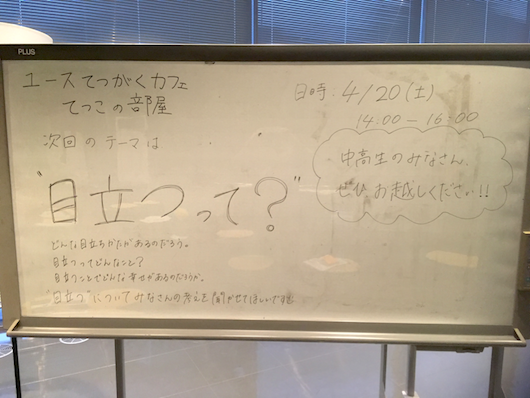 PLUS
ユースてつがくカフェ
てつこの部屋
日時: 4/20(土)
14:00 - 16:00
次回のテーマは
中高生のみなさん
ぜひお越しください!!
"目立つって?"
どんな目立ちかたがあるのだろう。
目立つってどんなこと?
目立つことでどんな幸せがあるのだろうか。
"目立つ"についてみなさんの考えを聞かせてほしいです